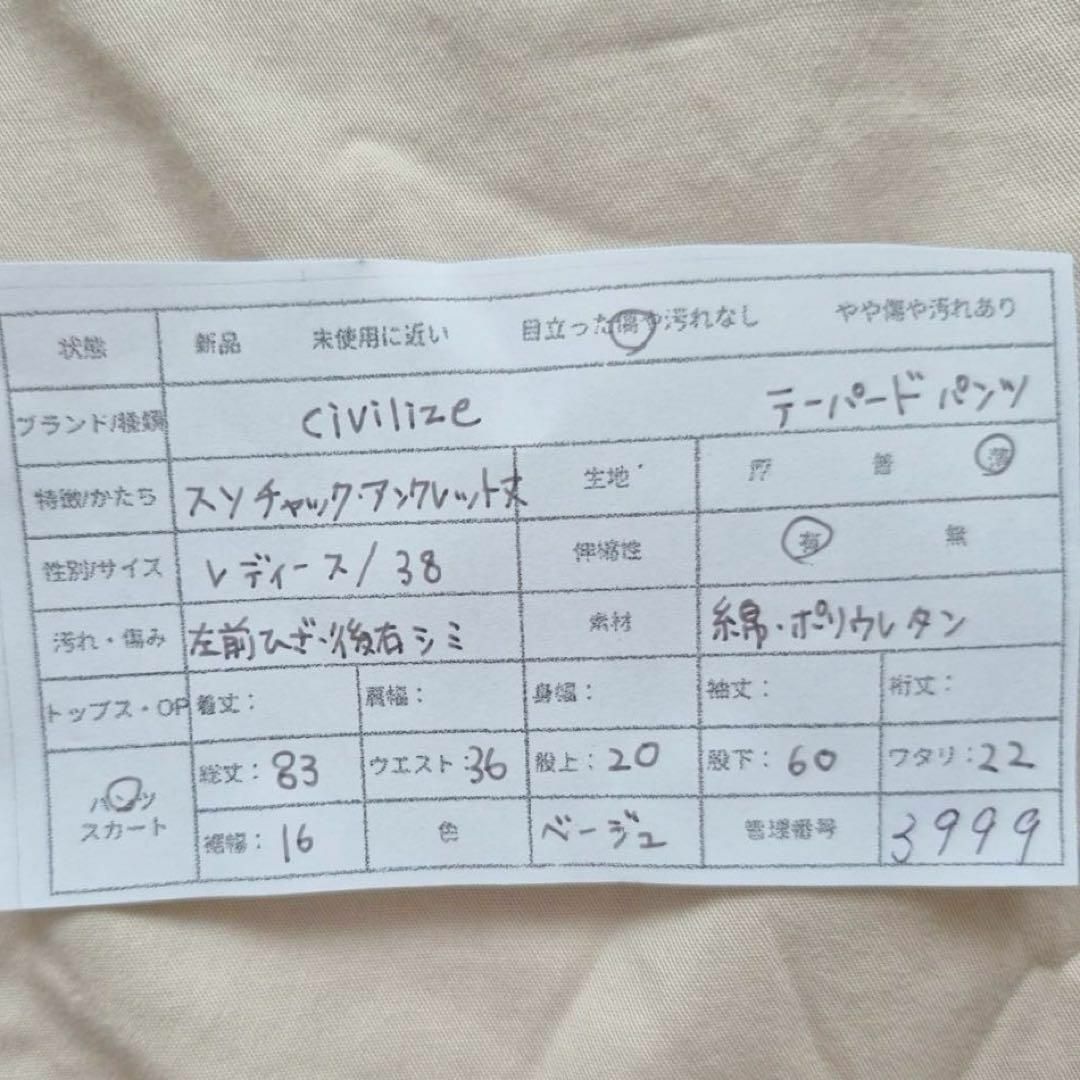 状態 新品 未使用に近い 目立った傷や汚れなし やや傷や汚れあり
ブランド/種類 civilize テーパードパンツ
特徴/かたち スソチャック・アンクレット丈 生地 厚 普 薄
性別/サイズ レディース/38 伸縮性 有 無
汚れ・傷み 左前ひざ・後右シミ 素材 綿・ポリウレタン
トップス・OP 着丈: 肩幅: 身幅: 袖丈: 裄丈:
パンツ 総丈:83 ウエスト:36 股上:20 股下:60 ワタリ:22
スカート 裾幅:16 色 ベージュ 管理番号 3999